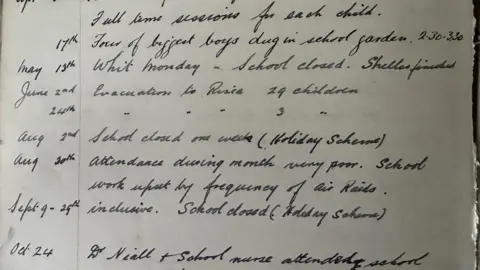 Full time sessions for each child.
17th Four of biggest boys dug in school garden. 2.30-3.30
May 13th Whit Monday - School closed. Shelter finished
June 2nd Evacuation to Risca 29 children
24th " " " 3 "
Aug 2nd School closed one week (Holiday Scheme)
Aug 30th Attendance during month very poor. School
work upset by frequency of Air Raids.
Sept 9 - 25th inclusive. School closed (Holiday Scheme)
Oct 24 Dr Niall + School nurse attended school